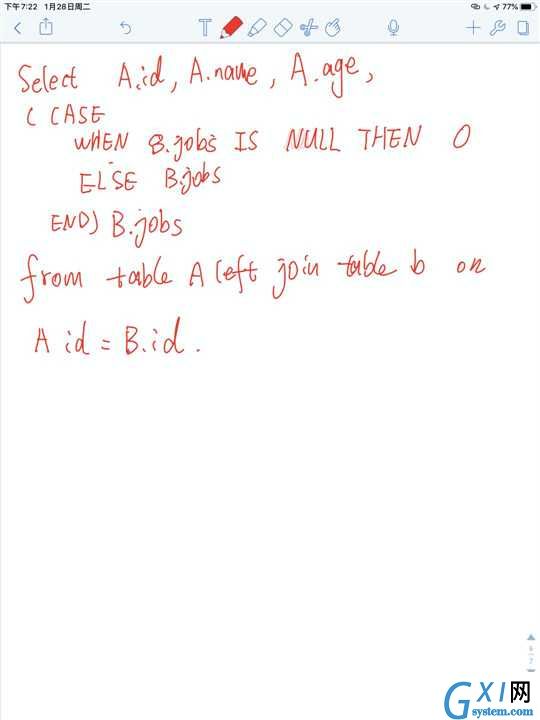 下午7:22 1月28日周二
77%
Select A.id, A.name, A.age,
( CASE
WHEN B.jobs IS NULL THEN 0
ELSE B.jobs
END) B.jobs
from table A left join table b on
A id = B.id .
6
7
GXI网
system.com